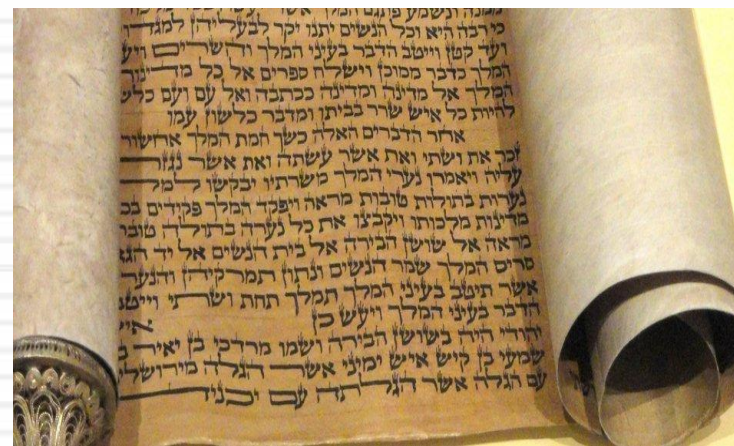 ונשמע פתגם המלך אשר
כי רבה היא וכל הנשים יתנו יקר לבעליהן למגד
ועד קטן וייטב הדבר בעיני המלך והשרים ויע
המלך כדבר ממוכן וישלח ספרים אל כל מדינות
המלך אל מדינה ומדינה ככתבה ואל עם ועם כלש
להיות כל איש שרר בביתו ומדבר כלשון עמו
אחר הדברים האלה כשך חמת המלך אחשור
זכר את ושתי ואת אשר עשתה ואת אשר נגזר
עליה ויאמרו נערי המלך משרתיו יבקשו למל
נערות בתולות טובות מראה ויפקד המלך פקידים בכ
מדינות מלכותו ויקבצו את כל נערה בתולה טובת
מראה אל שושן הבירה אל בית הנשים אל יד הגא
סריס המלך שמר הנשים ונתון תמרקיהן והנער
אשר תיטב בעיני המלך תמלך תחת ושתי וייטב
הדבר בעיני המלך ויעש כן איש
יהודי היה בשושן הבירה ושמו מרדכי בן יאיר ב
שמעי בן קיש איש ימיני אשר הגלה מירושלי
עם הגלה אשר הגלתה עם יכני